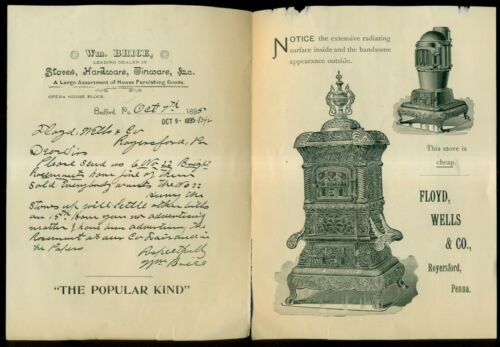 Wm. BRICE,
LEADING DEALER IN
Stoves, Hardware, Tinware, &c.
A Large Assortment of House Furnishing Goods.
OPERA HOUSE BLOCK.
Bedford, Pa. Oct 7th 1895
OCT 9 - 1895
Floyd, Wells & Co
Royersford, Pa
Dear Sirs
Please send us 6 No 22 Bright
Rosemounts have five of them
sold Everybody wants the No 22
Hurry the
Stoves up will settle other bills
on 15th have you no advertising
matter I have been advertising the
Rosemount at our Co Fair and in
the Papers
Respectfully
Wm Brice
"THE POPULAR KIND"
NOTICE the extensive radiating
surface inside and the handsome
appearance outside.
This stove is
cheap.
FLOYD,
WELLS
& CO.,
Royersford,
Penna.